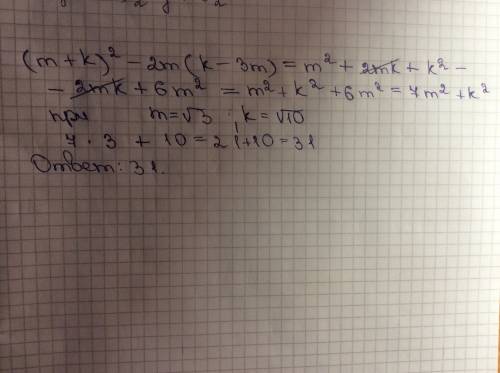 (m+k)² - 2m(k-3m) = m² + 2mk + k² -
- 2mk + 6m² = m² + k² + 6m² = 7m² + k²
при m=√3 ; k=√10
7 · 3 + 10 = 21+10 = 31
Ответ: 31.